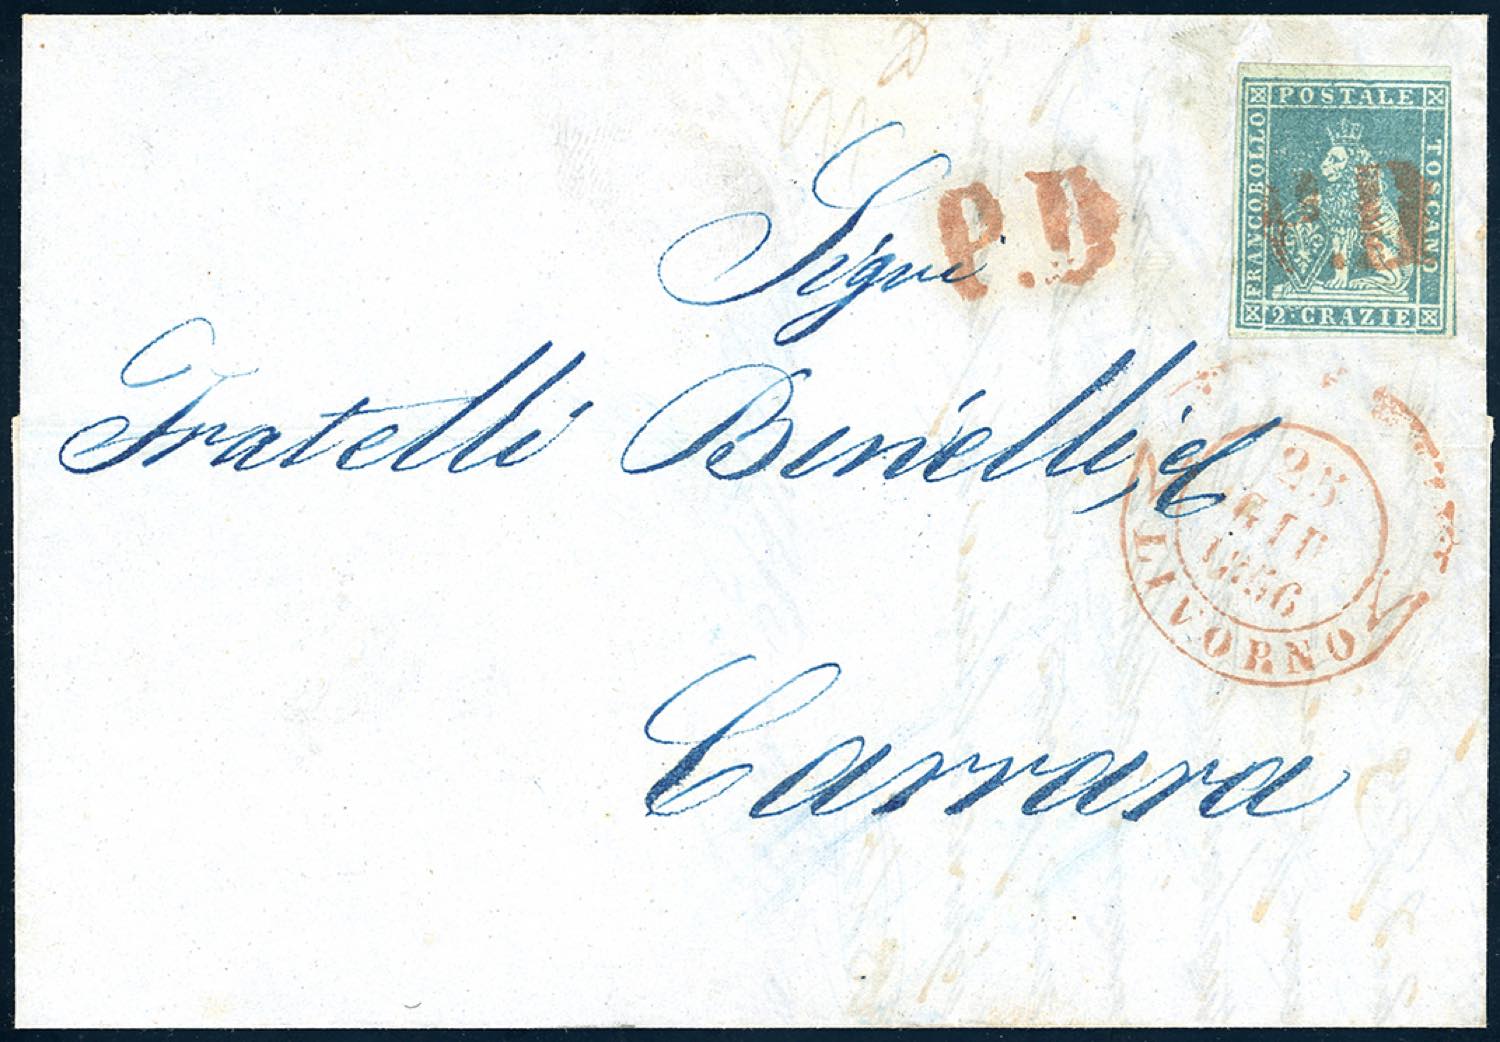 POSTALE
FRANCOBOLLO
TOSCANO
2 CRAZIE
P.D
.D
Sigri
Fratelli Binelli, &
25
GIU
1856
LIVORNO
Carrara